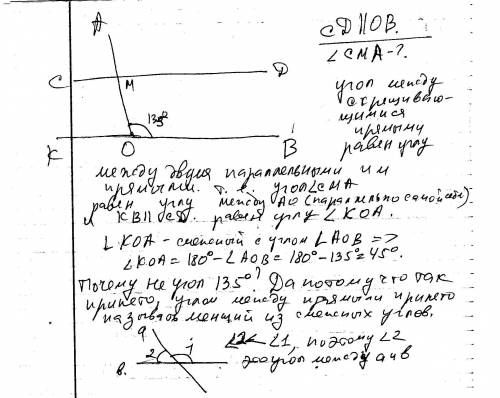 A
CD||OB.
∠CMA-?.
C M D
135°
K O B
угол между
скрещиваю-
щимися
прямыми
равен углу
между двумя параллельными им
прямыми. т. е. угол ∠CMA
равен углу между AO (параллельно самой себе)
и KB||CD. равен углу ∠KOA.
∠KOA - смежный с углом ∠AOB =>
∠KOA = 180° - ∠AOB = 180° - 135° = 45°.
Почему не угол 135°? Да потому что так
принято, углом между прямыми принято
называть меньший из смежных углов.
a
2 1
в.
∠2<∠1, поэтому ∠2
это угол между a и в